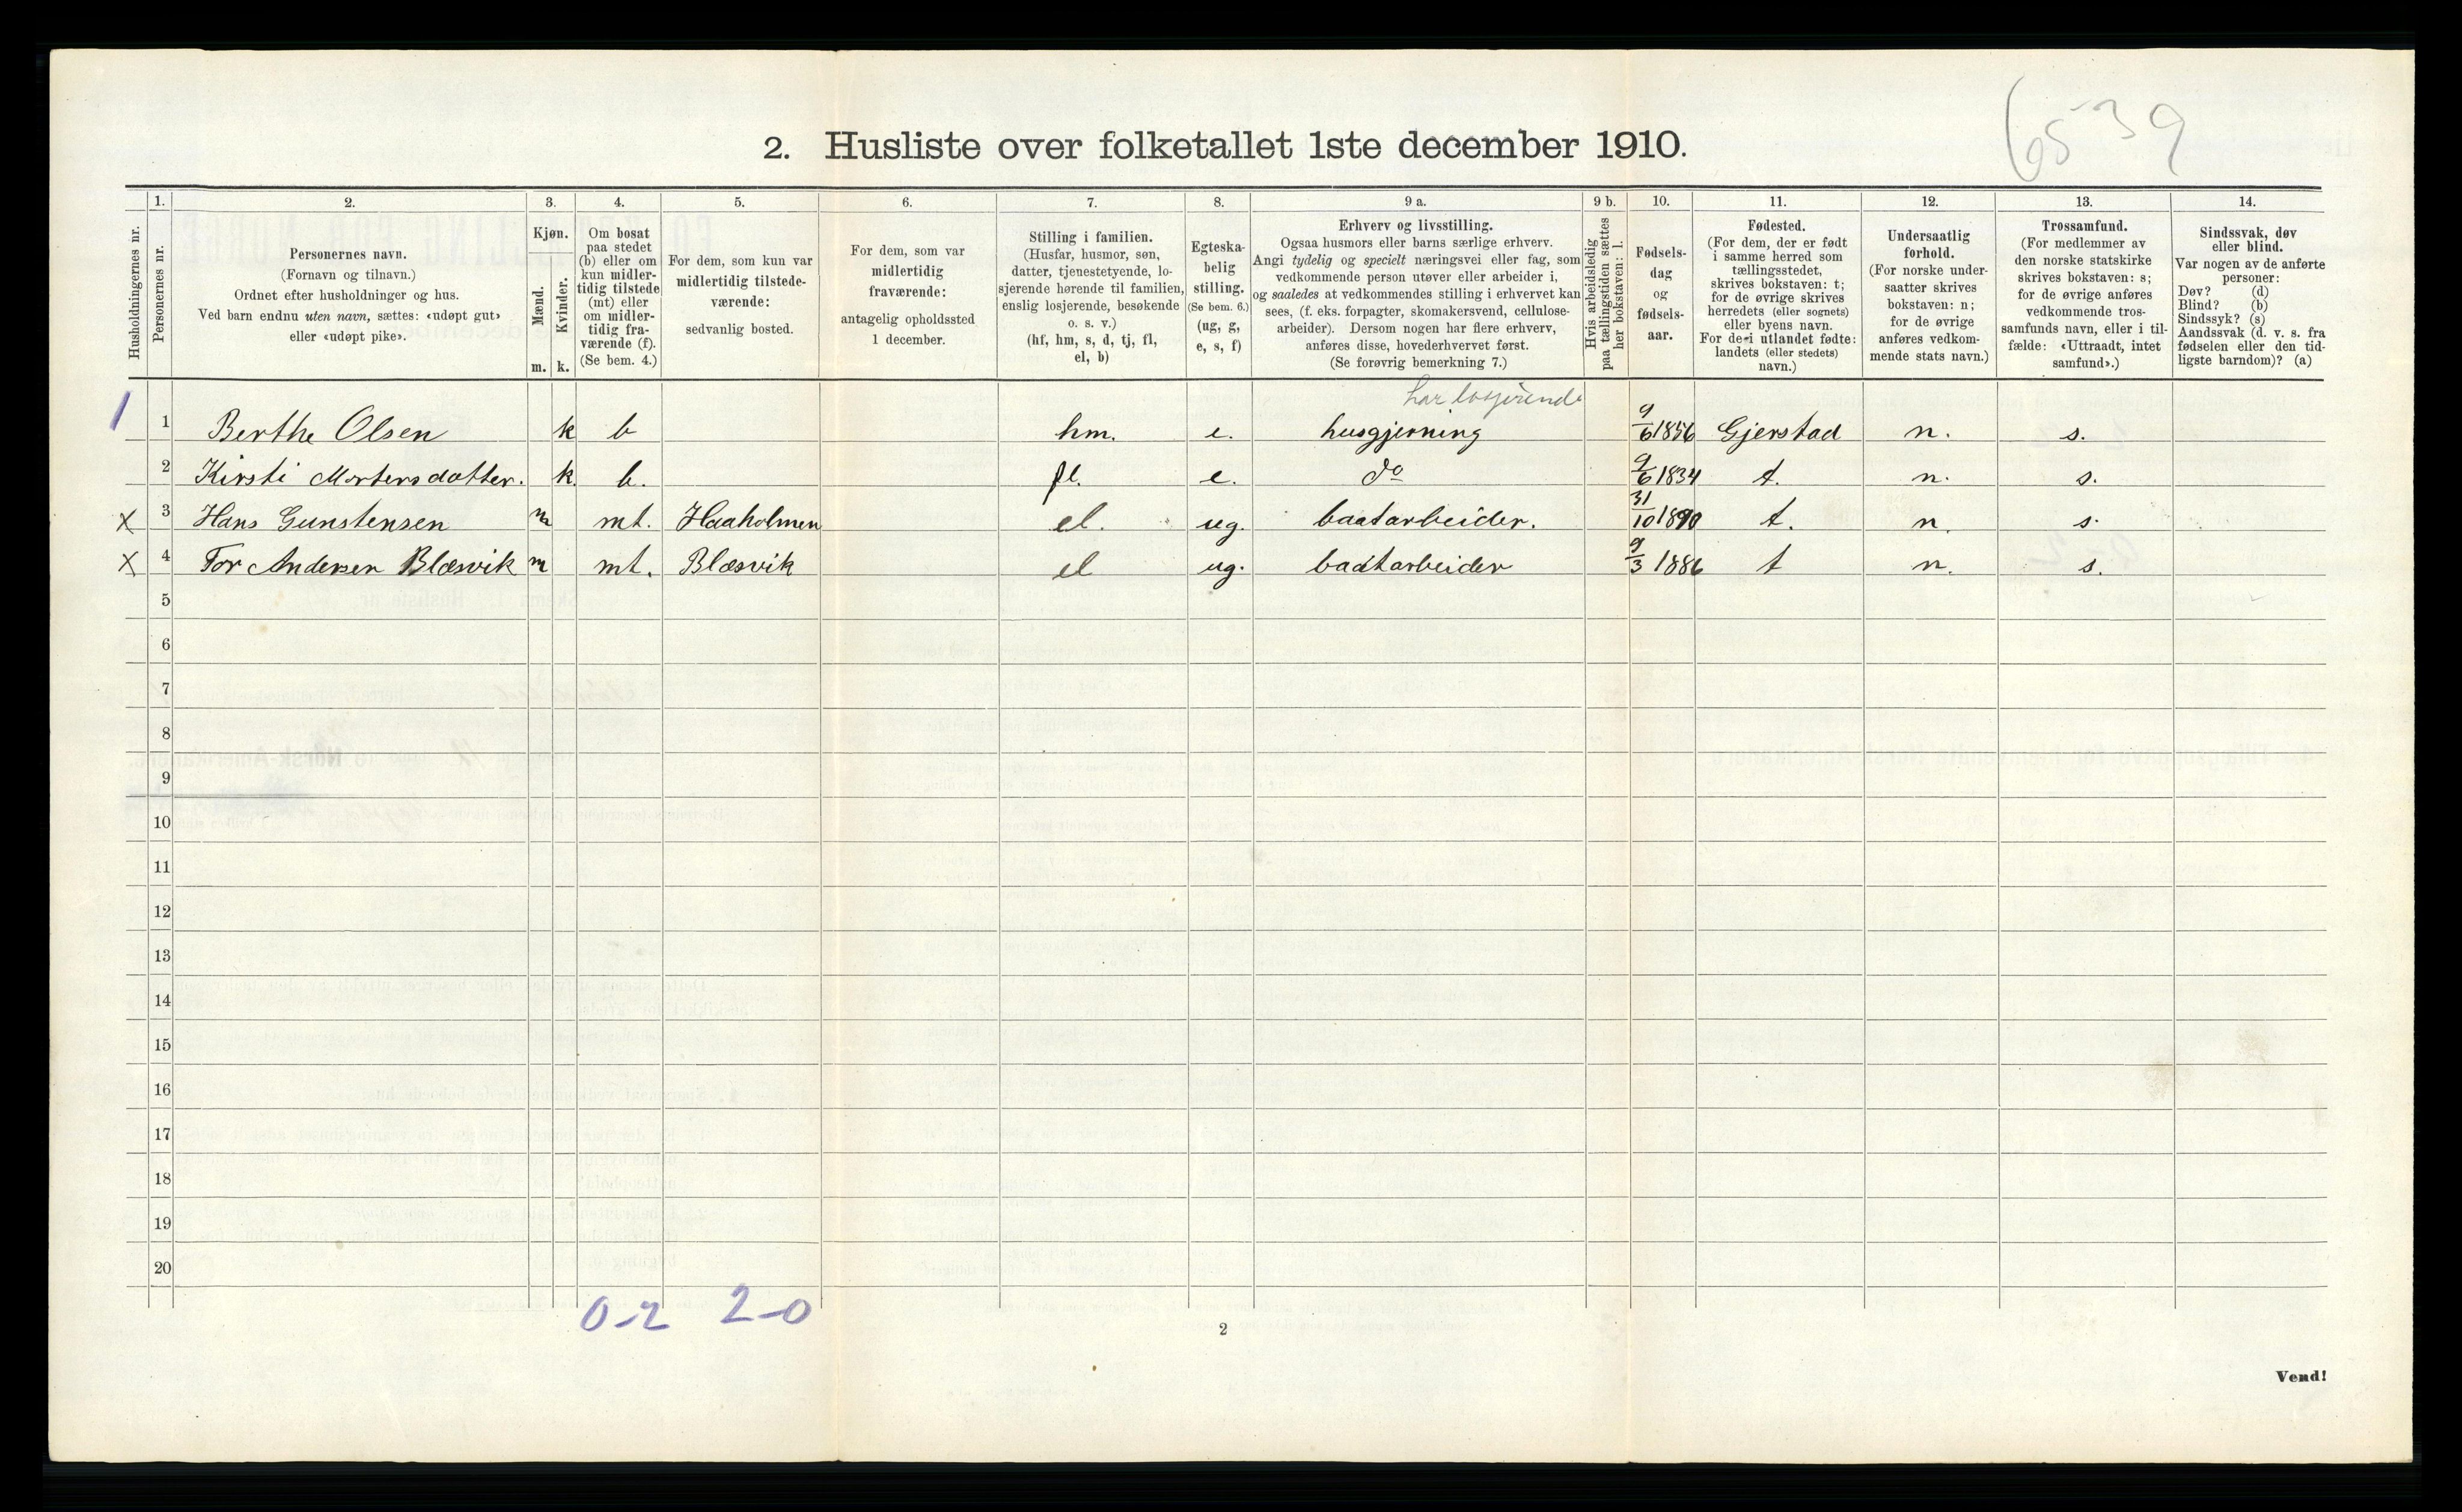 6539
2. Husliste over folketallet 1ste december 1910.
Husholdningernes nr.
1. Personernes nr.
2. Personernes navn.
(Fornavn og tilnavn.)
Ordnet efter husholdninger og hus.
Ved barn endnu uten navn, sættes: «udøpt gut»
eller «udøpt pike».
3. Kjøn.
Mænd. m.
Kvinder. k.
4. Om bosat
paa stedet
(b) eller om
kun midler-
tidig tilstede
(mt) eller
om midler-
tidig fra-
værende (f).
(Se bem. 4.)
5. For dem, som kun var
midlertidig tilstede-
værende:
sedvanlig bosted.
6. For dem, som var
midlertidig
fraværende:
antagelig opholdssted
1 december.
7. Stilling i familien.
(Husfar, husmor, søn,
datter, tjenestetyende, lo-
sjerende hørende til familien,
enslig losjerende, besøkende
o. s. v.)
(hf, hm, s, d, tj, fl,
el, b)
8. Egteska-
belig
stilling.
(Se bem. 6.)
(ug, g,
e, s, f)
9 a. Erhverv og livsstilling.
Ogsaa husmors eller barns særlige erhverv.
Angi tydelig og specielt næringsvei eller fag, som
vedkommende person utøver eller arbeider i,
og saaledes at vedkommendes stilling i erhvervet kan
sees, (f. eks. forpagter, skomakersvend, cellulose-
arbeider). Dersom nogen har flere erhverv,
anføres disse, hovederhvervet først.
(Se forøvrig bemerkning 7.)
9 b. Hvis arbeidsledig
paa tællingstiden sættes
her bokstaven: l.
10. Fødsels-
dag
og
fødsels-
aar.
11. Fødested.
(For dem, der er født
i samme herred som
tællingsstedet,
skrives bokstaven: t;
for de øvrige skrives
herredets (eller sognets)
eller byens navn.
For de i utlandet fødte:
landets (eller stedets)
navn.)
12. Undersaatlig
forhold.
(For norske under-
saatter skrives
bokstaven: n;
for de øvrige
anføres vedkom-
mende stats navn.)
13. Trossamfund.
(For medlemmer av
den norske statskirke
skrives bokstaven: s;
for de øvrige anføres
vedkommende tros-
samfunds navn, eller i til-
fælde: «Uttraadt, intet
samfund».)
14. Sindssvak, døv
eller blind.
Var nogen av de anførte
personer:
Døv? (d)
Blind? (b)
Sindssyk? (s)
Aandssvak (d. v. s. fra
fødselen eller den tid-
ligste barndom)? (a)
har losjerende
1 1 Berthe Olsen k b hm. e. husgjerning 9/6 1856 Gjerstad n. s.
2 Kirsti Mortensdatter. k. b. fl. e. do 9/6 1834 t. n. s.
X 3 Hans Gunstensen m mt. Haaholmen el. ug. baatarbeider. 31/10 1890 t. n. s.
X 4 Tor Andersen Blæsvik m mt. Blæsvik el ug. baatarbeider 9/3 1886 t n. s.
5
6
7
8
9
10
11
12
13
14
15
16
17
18
19
20
0-2 2-0
2
Vend!